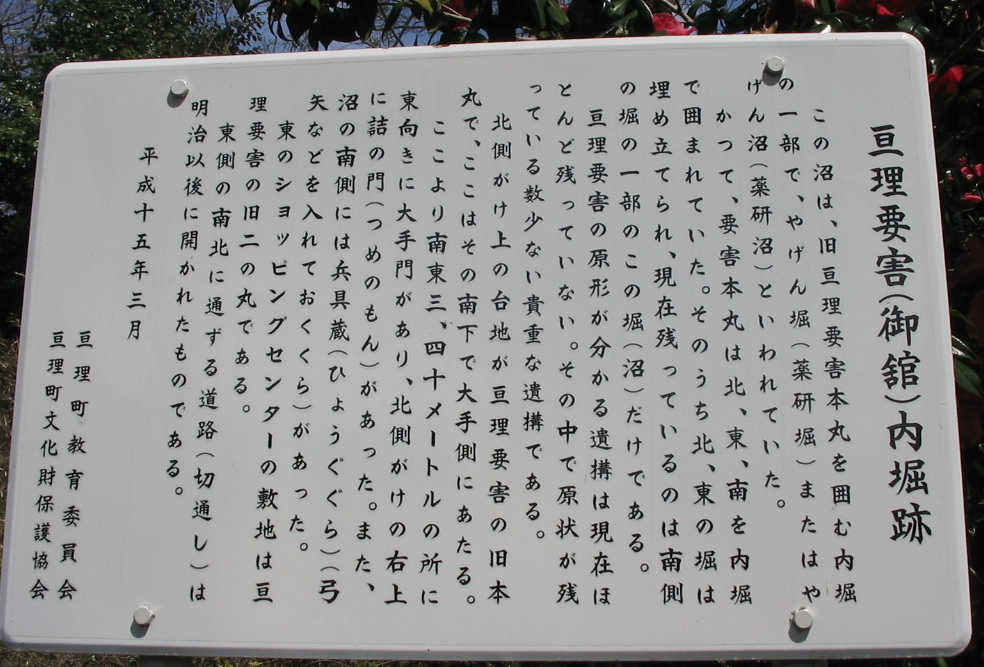 亘理要害(御舘)内堀跡
この沼は、旧亘理要害本丸を囲む内堀
の一部で、やげん堀(薬研堀)またはや
げん沼(薬研沼)といわれていた。
かつて、要害本丸は北、東、南を内堀
で囲まれていた。そのうち北、東の堀は
埋め立てられ、現在残っているのは南側
の堀の一部のこの堀(沼)だけである。
亘理要害の原形が分かる遺構は現在ほ
とんど残っていない。その中で原状が残
っている数少ない貴重な遺構である。
北側がけ上の台地が亘理要害の旧本
丸で、ここはその南下で大手側にあたる。
ここより南東三、四十メートルの所に
東向きに大手門があり、北側がけの右上
に詰の門(つめのもん)があった。また、
沼の南側には兵具蔵(ひょうぐぐら)(弓
矢などを入れておくくら)があった。
東のショッピングセンターの敷地は亘
理要害の旧二の丸である。
東側の南北に通ずる道路(切通し)は
明治以後に開かれたものである。
平成十五年三月
亘理町教育委員会
亘理町文化財保護協会